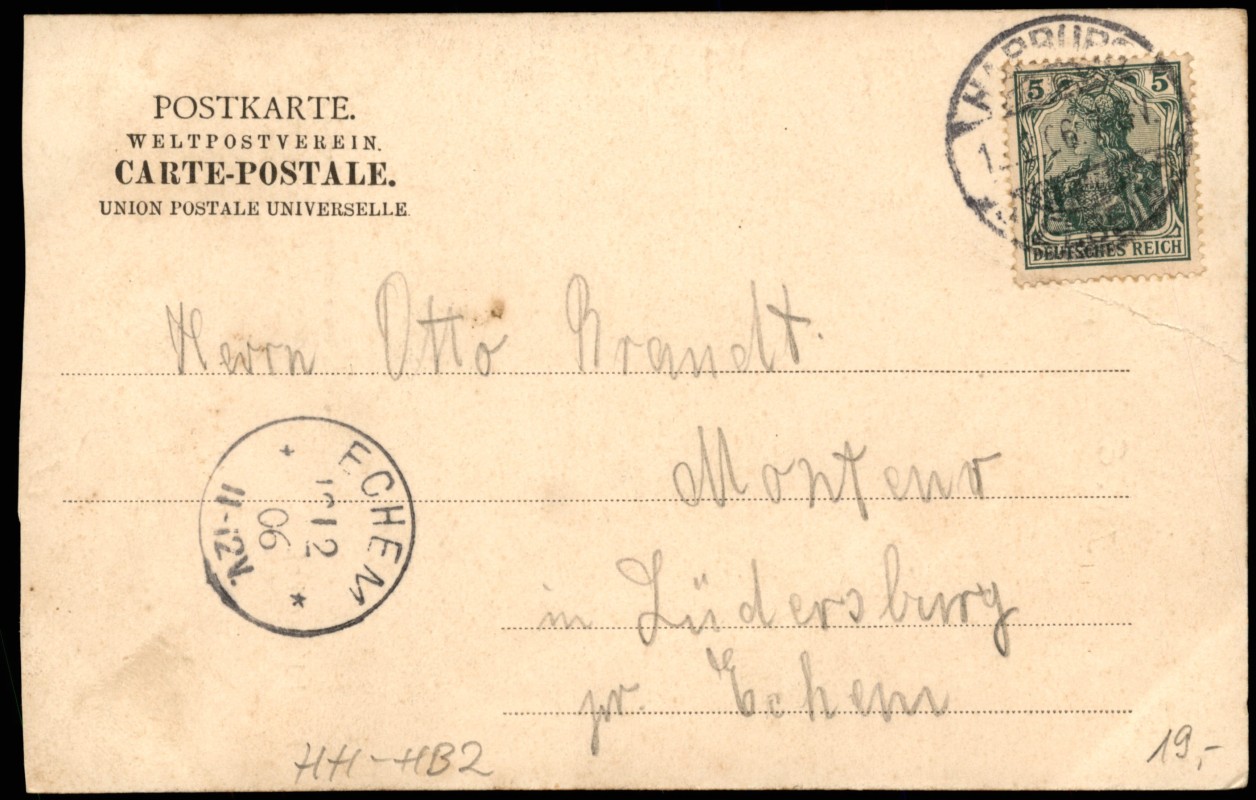 POSTKARTE.
WELTPOSTVEREIN.
CARTE-POSTALE.
UNION POSTALE UNIVERSELLE.
HARBURG
5 5
DEUTSCHES REICH
Herrn Otto Brandt.
Monteur
in Lüdersburg
pr. Echem
ECHEM
12
06
11-12N.
HH-HB2
19,-